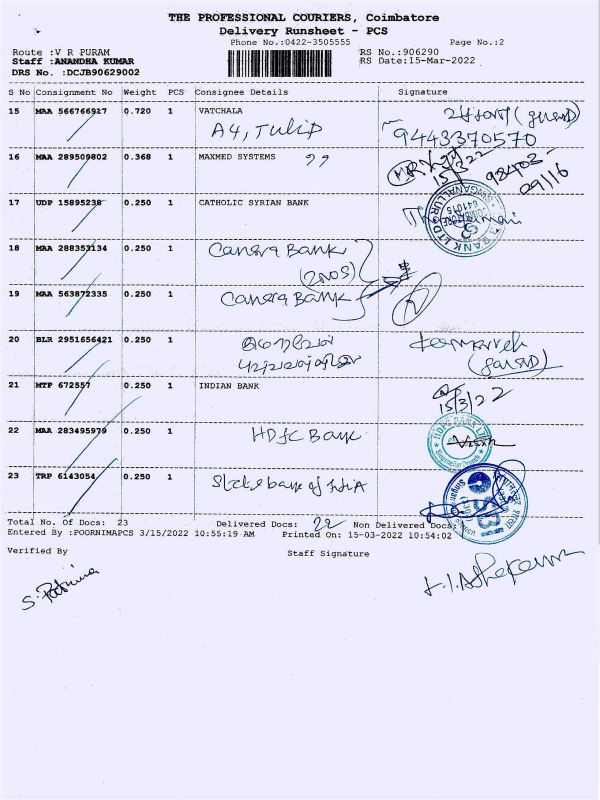 THE PROFESSIONAL COURIERS, Coimbatore
Delivery Runsheet - PCS
Phone No.:0422-3505555 Page No.:2
Route :V R PURAM RS No.:906290
Staff :ANANDHA KUMAR RS Date:15-Mar-2022
DRS No. :DCJB90629002
S No Consignment No Weight PCS Consignee Details Signature
15 MAA 566766917 0.720 1 VATCHALA
A4, Tulip 9443370570
16 MAA 289509802 0.368 1 MAXMED SYSTEMS ??
15/3/22 93403
09116
17 UDP 15895238 0.250 1 CATHOLIC SYRIAN BANK
18 MAA 288353134 0.250 1 Canara Bank
(2nos)
19 MAA 563872335 0.250 1 Canara Bank
20 BLR 2951656421 0.250 1
21 MTP 672557 0.250 1 INDIAN BANK
15/3/22
22 MAA 283495979 0.250 1 HDFC Bank
23 TRP 6143054 0.250 1 State bank of India
Total No. Of Docs: 23 Delivered Docs: 22 Non Delivered Docs:
Entered By :POORNIMAPCS 3/15/2022 10:55:19 AM Printed On: 15-03-2022 10:54:02
Verified By Staff Signature